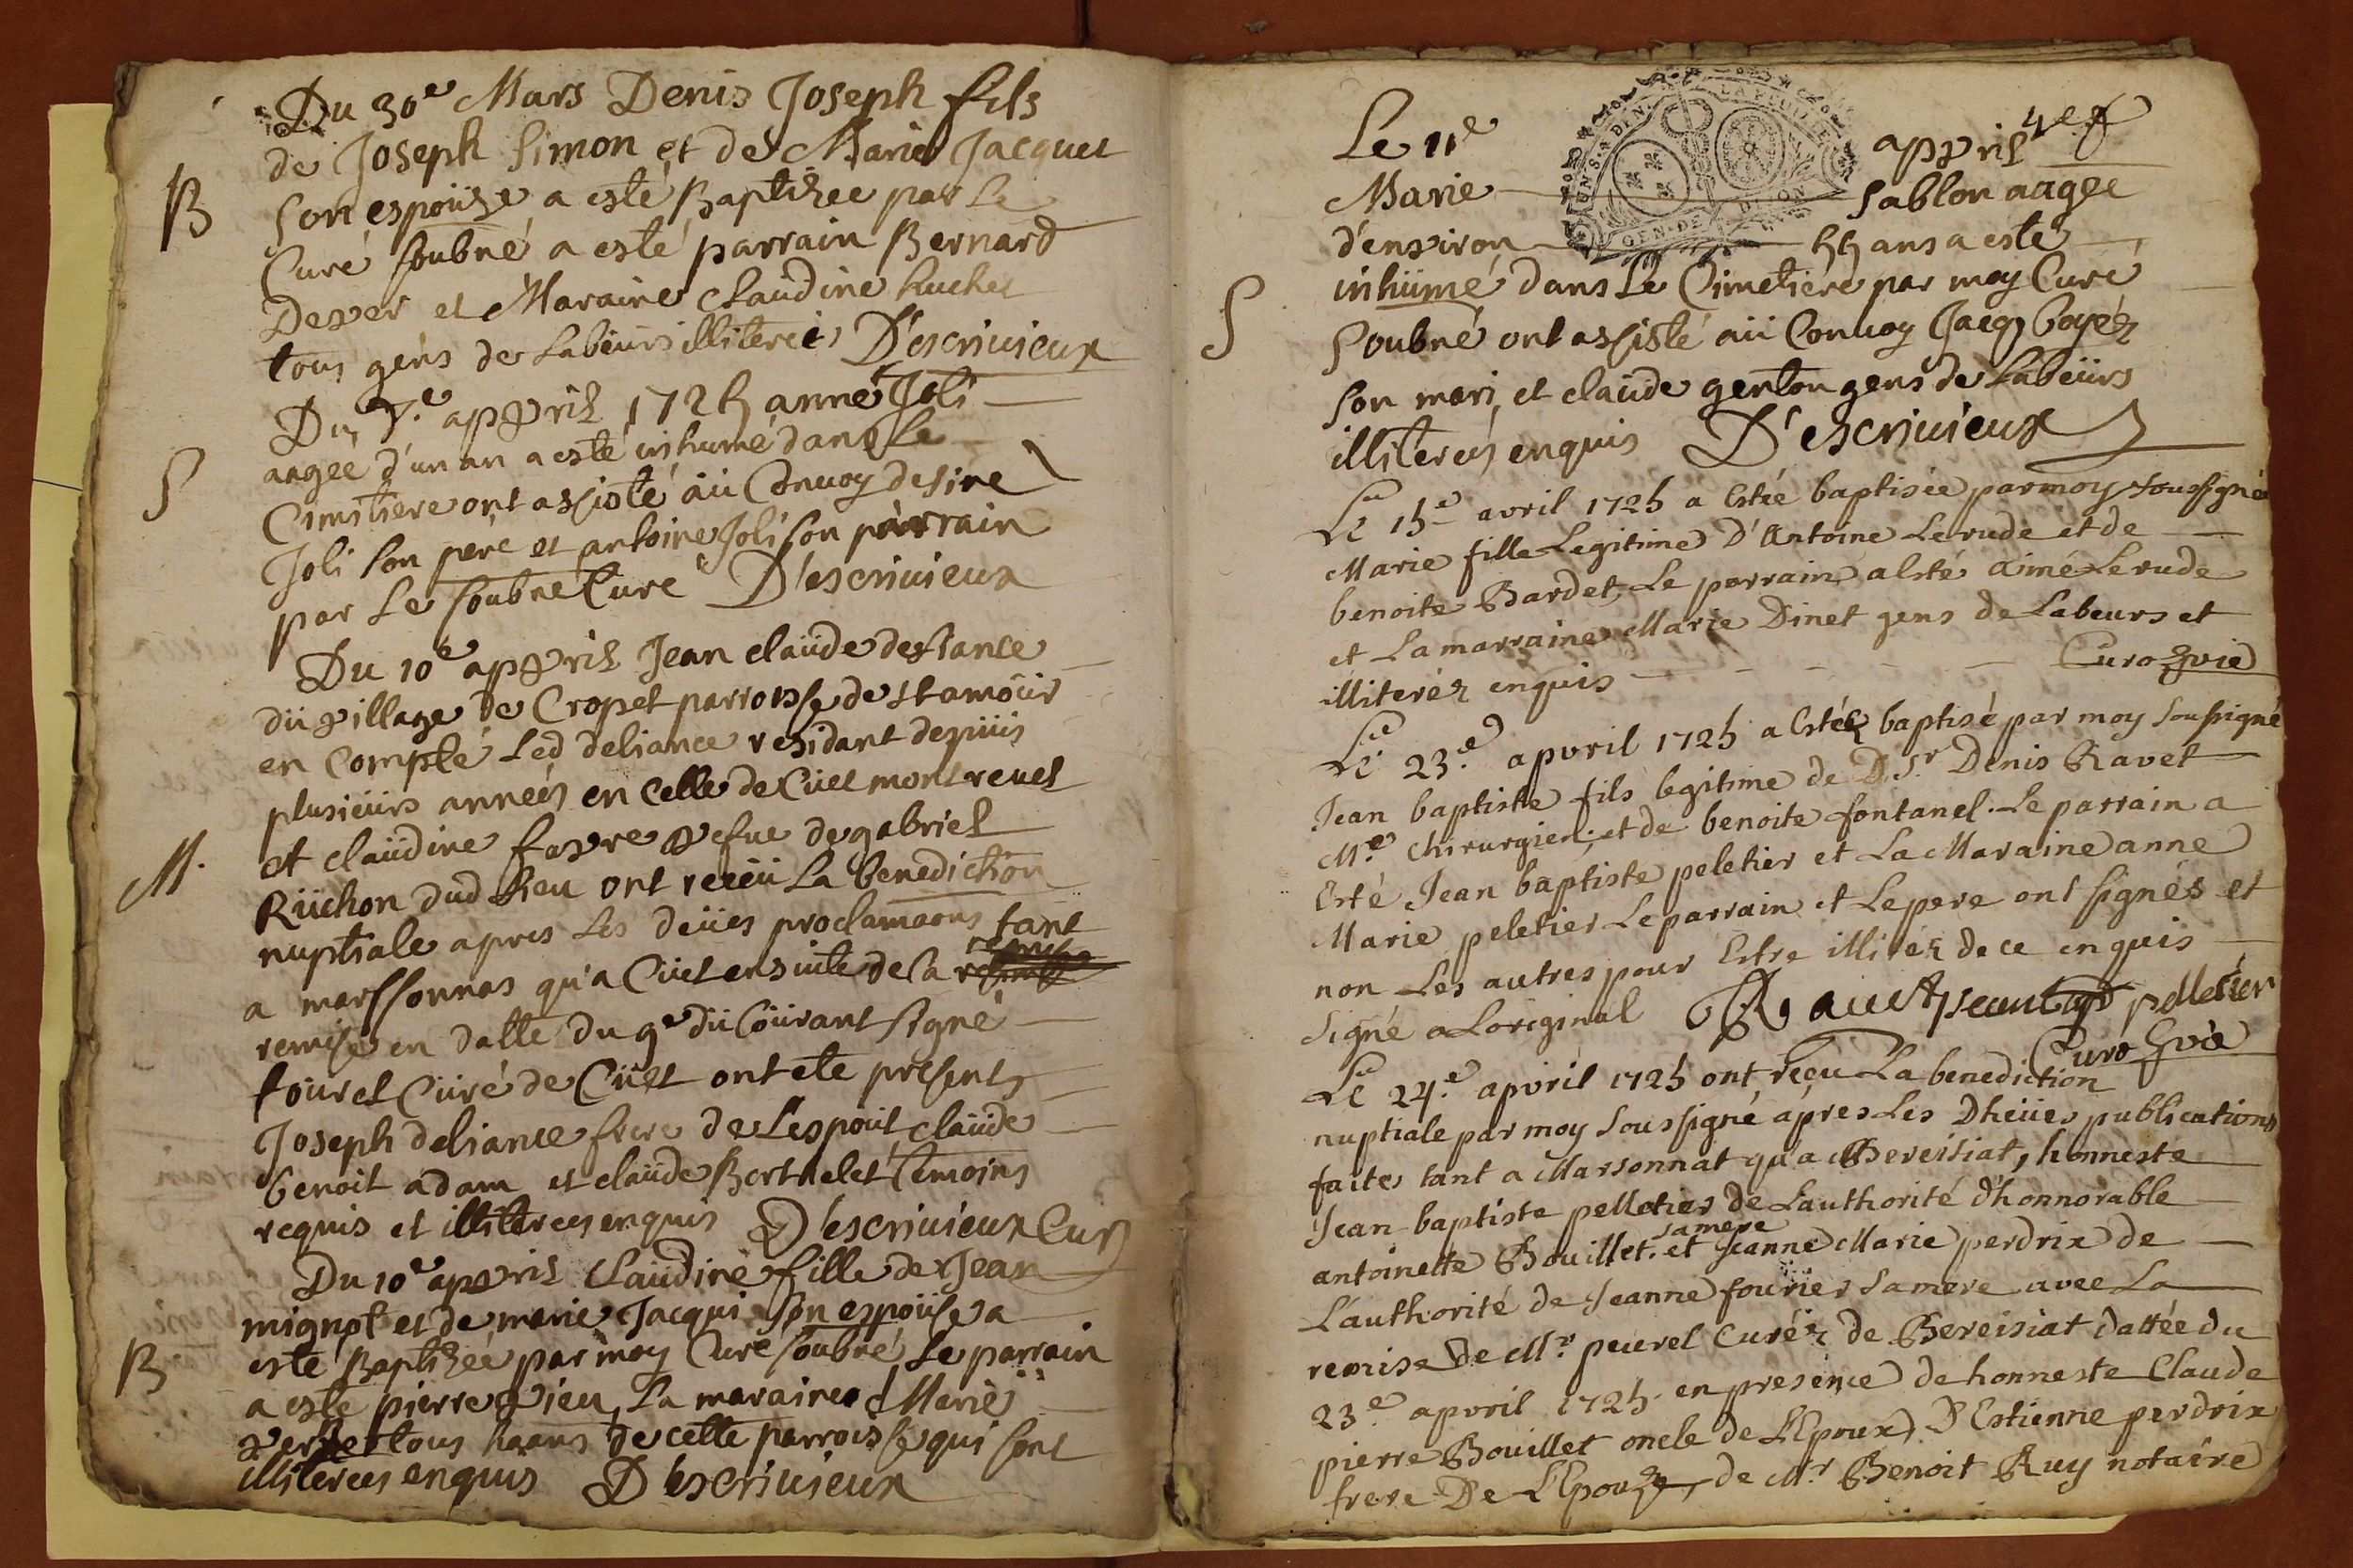 Du 30e Mars Denis Joseph fils
de Joseph Simon et de Marie Jacquet
B
son espouze a esté Baptizée par le
Curé soubné a esté parrain Bernard
Dever et Maraine Claudine huchet
tous gens de Labeurs illiterés D'escrivieux
Du 7.e apvril 1725 anne Joli
S
aagée d'un an a esté inhumé dans le
Cimitiere ont assisté au Convoy desire
Joli son pere et antoine Joli son parrain
par le soubné Curé D'escrivieux
Du 10e apvril Jean claude desliance
du village de Cropet parroisse de st amour
en Compté Led deliance residant depuis
plusieurs années en celle de Cuet montrevel
M.
et claudine favre vefue de gabriel
Ruchon dud lieu ont receu La benediction
nuptiale apres les deues proclamaons tant
a marssonnas qu'a Cuet ensuite de la
remise en datte du 9e du Courant signé
touret Curé de Cuet ont ete presents
Joseph deliance frere de Lespout claude
benoit adam et claude Berthelet temoins
requis et illiterees enquis D'escrivieux Curé
Du 10e apvril Claudine fille de Jean
mignot et de marie Jacqui son espouse a
B.
esté Baptizée par moy Curé soubné, Le parrain
a esté pierre vieu, La maraine Marie
tous de cette parroisse qui sont
illiterees enquis D'escrivieux
Le 11e apvril 4e f
GEN·DE·DIJON
Marie Sablon aagée
d'environ 55 ans a esté
inhumé dans Le Cimetiere par moy Curé
S
Soubné ont assisté au Convoy Jacq boyer
son mari et claude genton gens de Labeurs
illiterés enquis D'escrivieux
Le 15e avril 1725 a Estée baptisée par moy soussigné
Marie fille Legitime D'Antoine Lerude et de
benoite Bardet, Le parrain a Esté aimé Lerude
et La marraine Marie Dinet gens de Labeurs et
illiteréz enquis
Le 23.e apvril 1725 a Esté baptisé par moy soussigné
Jean baptiste fils legitime de D. Sr Denis Ravet
Me. Chirurgien, et de benoite fontanel. Le parrain a
Esté Jean baptiste peletier et La Maraine anne
Marie peletier Le parrain et Le pere ont signés et
non Les autres pour Estre illiréz de ce enquis
Signé a L'original Ravet Jean bap pelletier
Le 24.e apvril 1725 ont reçu La benediction
nuptiale par moy soussigné apres Les Dheües publications
faites tant a Marsonnat qu'a Bereisiat, honneste
Jean baptiste pelletier de L'authorité d'honnorable
antoinette Bouillet. sa mere et Jeanne Marie perdrix de
L'authorité de Jeanne fourier sa mere avec La
remise de Mr. peurel Curéz de Bereisiat dattée du
23.e apvril 1725. en presence de honneste Claude
pierre Bouillet oncle de L'Epoux, D'Estienne perdrix
frere De L'Epouze, de Mr Benoit Ruy notaire